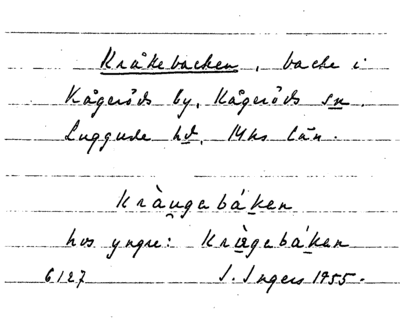 Kråkebacken, backe i
Kågeröds by, Kågeröds sn.
Luggude hd, Mhs län.
Kràu̯gabáken
hos yngre: Kràgabáken
6127 I. Ingers 1955.